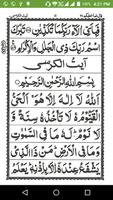 4:21 PM
فَبِاَیِّ اٰلَآءِ رَبِّكُمَا تُكَذِّبٰنِ تَبٰرَكَ
اسْمُ رَبِّكَ ذِی الْجَلٰلِ وَالْاِكْرَامِ
اٰیَتُ الْكُرْسِی
بِسْمِ اللّٰهِ الرَّحْمٰنِ الرَّحِیْمِ
اَللّٰهُ لَآ اِلٰهَ اِلَّا هُوَ اَلْحَیُّ
الْقَیُّوْمُ لَا تَاْخُذُهٗ سِنَةٌ وَّ
لَا نَوْمٌ لَهٗ مَا فِی السَّمٰوٰتِ
وَمَا فِی الْاَرْضِ مَنْ ذَا الَّذِیْ
یَشْفَعُ عِنْدَهٗٓ اِلَّا بِاِذْنِهٖ